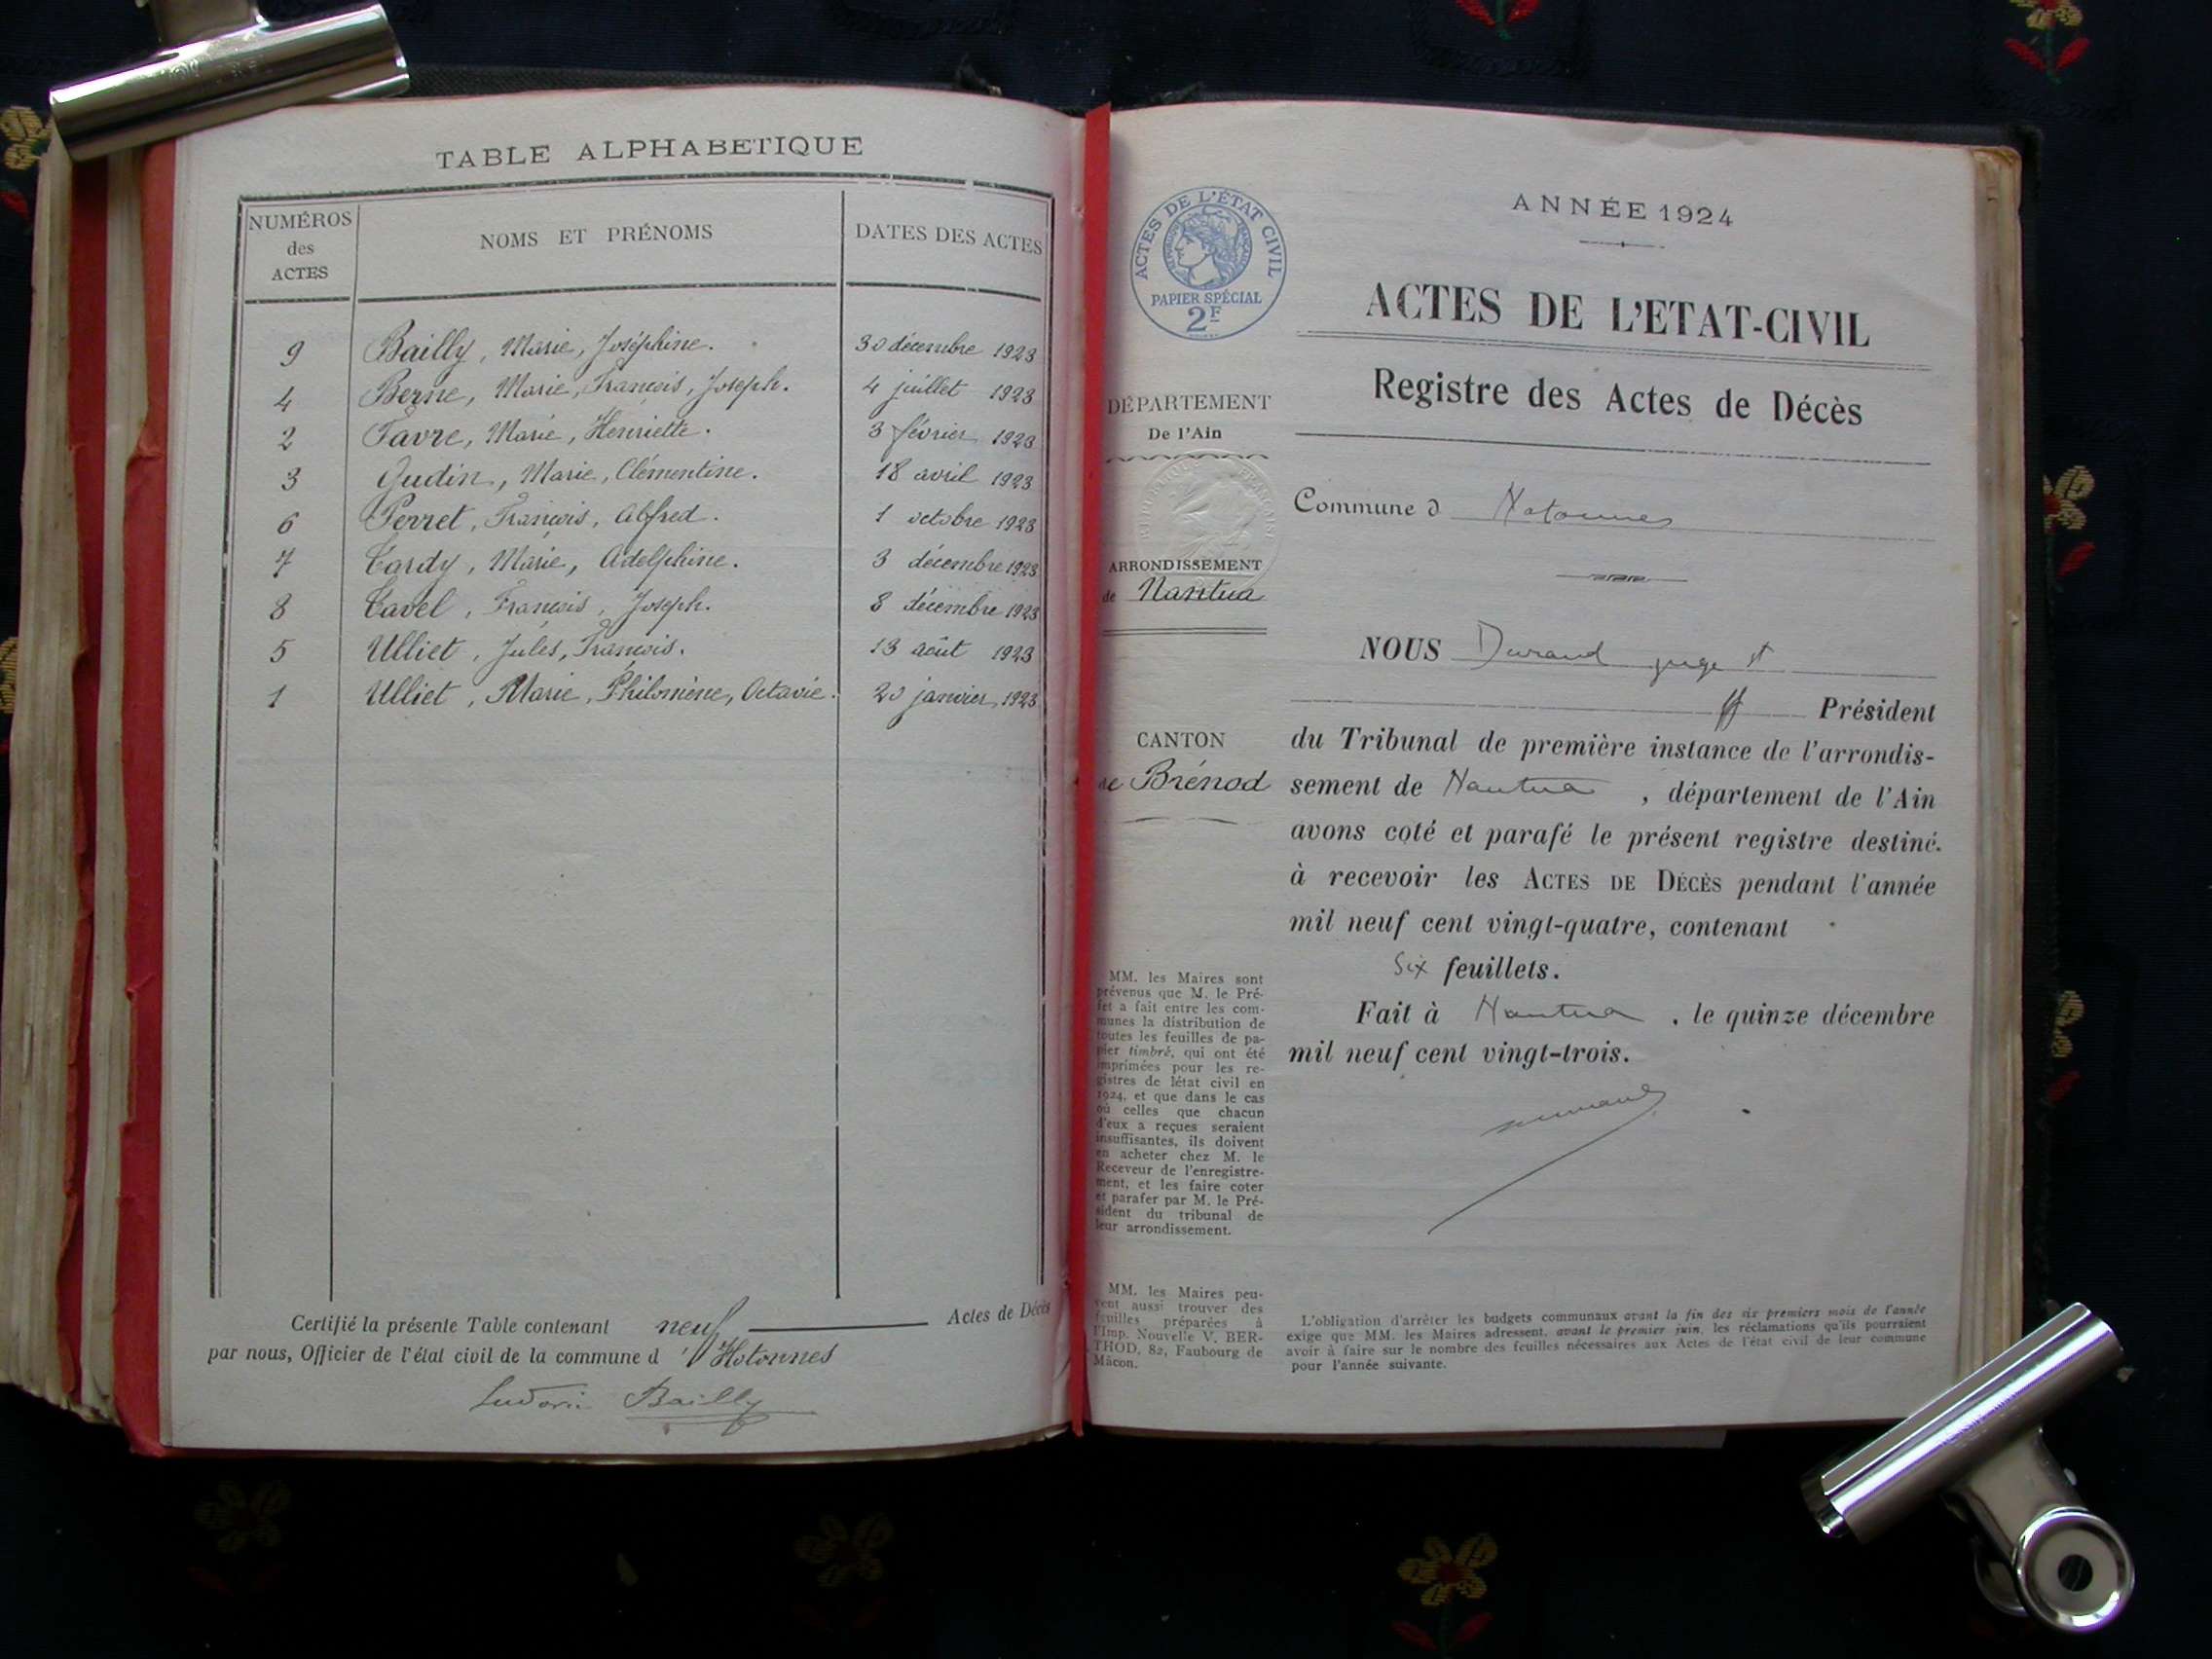 TABLE ALPHABETIQUE
NUMÉROS des ACTES
NOMS ET PRÉNOMS
DATES DES ACTES
9 Bailly, Marie, Joséphine. 30 décembre 1923
4 Berne, Marie, François, Joseph. 4 juillet 1923
2 Favre, Marie, Henriette. 3 février 1923
3 Gudin, Marie, Clémentine. 18 avril 1923
6 Perret, François, Alfred. 1 octobre 1923
7 Tardy, Marie, Adelphine. 3 décembre 1923
8 Tavel, François, Joseph. 8 décembre 1923
5 Ulliet, Jules, François. 13 août 1923
1 Ulliet, Marie, Philomène, Octavie. 20 janvier 1923
Certifié la présente Table contenant neuf Actes de Décès
par nous, Officier de l'état civil de la commune d'Hotonnes
Bailly
ACTES DE L'ÉTAT CIVIL
RÉPUBLIQUE FRANÇAISE
PAPIER SPÉCIAL
2F
DÉPARTEMENT
De l'Ain
ARRONDISSEMENT
de Nantua
CANTON
de Brénod
MM. les Maires sont
prévenus que M. le Pré-
fet a fait entre les com-
munes la distribution de
toutes les feuilles de pa-
pier timbré, qui ont été
imprimées pour les re-
gistres de létat civil en
1924, et que dans le cas
où celles que chacun
d'eux a reçues seraient
insuffisantes, ils doivent
en acheter chez M. le
Receveur de l'enregistre-
ment, et les faire coter
et parafer par M. le Pré-
sident du tribunal de
leur arrondissement.
MM. les Maires peu-
vent aussi trouver des
feuilles préparées à
l'Imp. Nouvelle V. BER-
THOD, 82, Faubourg de
Mâcon.
ANNÉE 1924
ACTES DE L'ETAT-CIVIL
Registre des Actes de Décès
Commune d Hotonnes
NOUS Durand juge
Président
du Tribunal de première instance de l'arrondis-
sement de Nantua, département de l'Ain
avons coté et parafé le présent registre destiné.
à recevoir les ACTES DE DÉCÈS pendant l'année
mil neuf cent vingt-quatre, contenant
Six feuillets.
Fait à Nantua, le quinze décembre
mil neuf cent vingt-trois.
L'obligation d'arrêter les budgets communaux avant la fin des six premiers mois de l'année
exige que MM. les Maires adressent, avant le premier juin, les réclamations qu'ils pourraient
avoir à faire sur le nombre des feuilles nécessaires aux Actes de l'état civil de leur commune
pour l'année suivante.